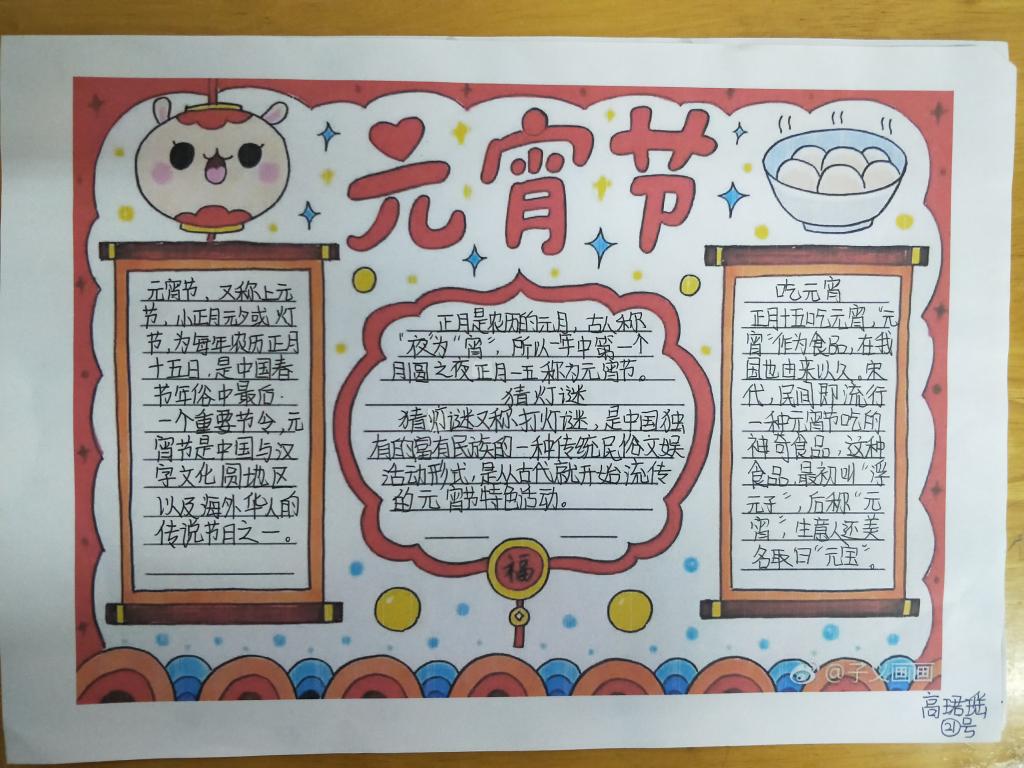 元宵节
元宵节，又称上元
节，小正月元夕或灯
节，为每年农历正月
十五日，是中国春
节年俗中最后
一个重要节令，元
宵节是中国与汉
字文化圆地区
以及海外华人的
传说节日之一。
正月是农历的元月，古人称
"夜为"宵"，所以一年中第一个
月圆之夜正月一五称为元宵节。
猜灯谜
猜灯谜又称打灯谜，是中国独
有的富有民族的一种传统民俗文娱
活动形式，是从古代就开始流传
的元宵节特色活动。
福
吃元宵
正月十五吃元宵，"元
宵"作为食品，在我
国也由来以久。宋
代，民间即流行
一种元宵节吃的
神奇食品，这种
食品，最初叫"浮
元子"，后称"元
宵"，生意人还美
名取曰"元宝"。
@子义画画
高珺瑶
21号